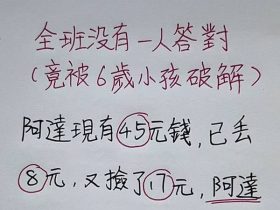 全班没有一人答對
(竟被6歲小孩破解)
阿達現有45元錢,已丢
8元,又撿了17元,阿達